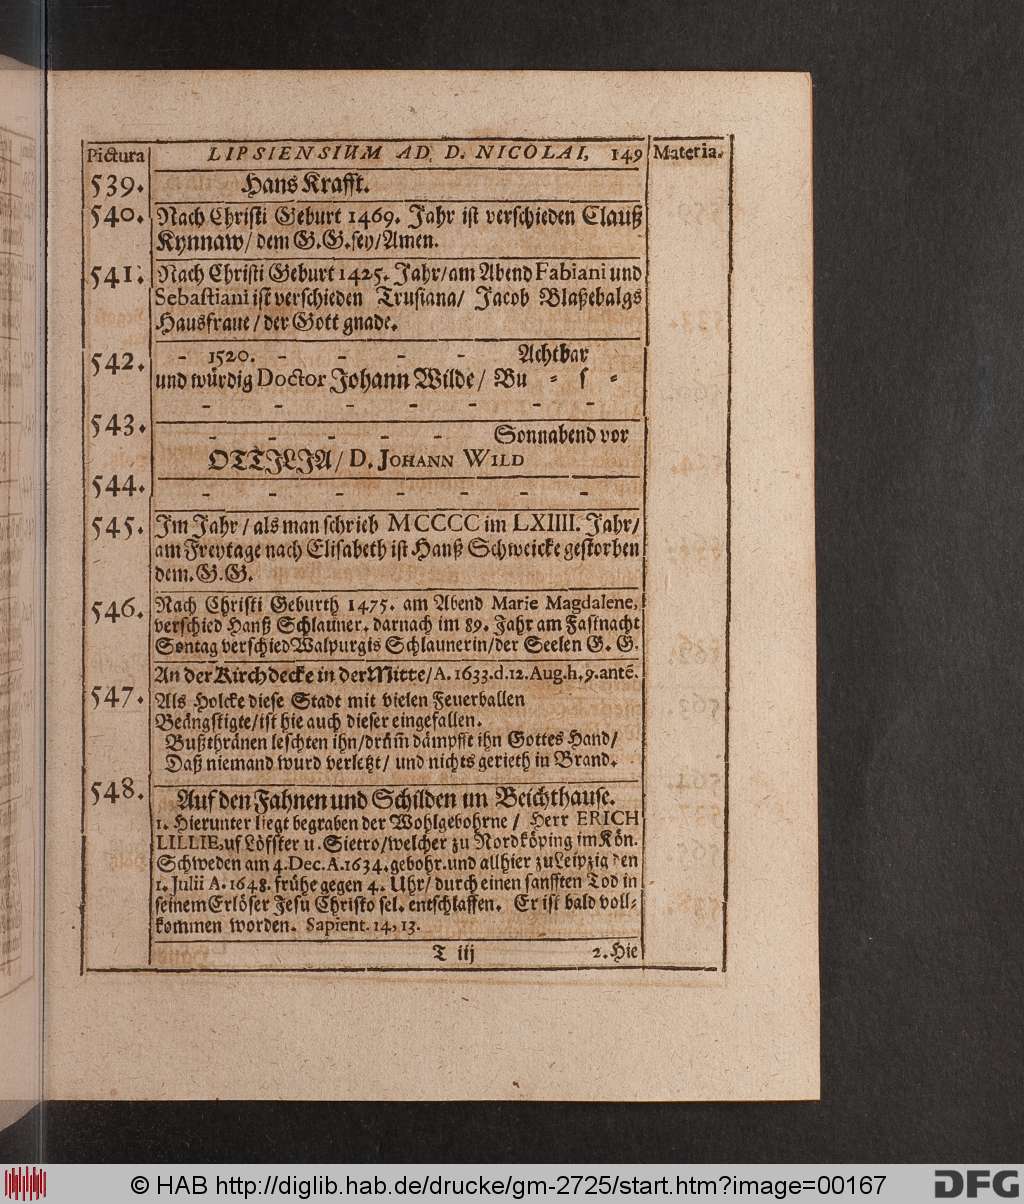 Pictura LIPSIENSIUM AD D. NICOLAI, 149 Materia.
539. Hans Krafft.
540. Nach Christi Geburt 1469. Jahr ist verschieden Clauß
Kynnaw/ dem G.G.sey/Amen.
541. Nach Christi Geburt 1425. Jahr/am Abend Fabiani und
Sebastiani ist verschieden Trusiana/ Jacob Blaßebalgs
Hausfraue/der Gott gnade.
542. - 1520. - - - - Achtbar
und würdig Doctor Johann Wilde/ Bu - s -
- - - - - - -
543. - - - - - Sonnabend vor
OTTJLJA/ D. JOHANN WILD
544. - - - - - - -
545. Im Jahr/als man schrieb MCCCC im LXIIII. Jahr/
am Freytage nach Elisabeth ist Hanß Schweicke gestorben
dem.G.G.
546. Nach Christi Geburth 1475. am Abend Marie Magdalene,
verschied Hanß Schlauner. darnach im 89. Jahr am Fastnacht
Sontag verschied Walpurgis Schlaunerin/der Seelen G. G.
An der Kirchdecke in der Mitte/A. 1633.d.12.Aug.h.9.antē.
547. Als Holcke diese Stadt mit vielen Feuerballen
Beängstigte/ist hie auch dieser eingefallen.
Bußthränen leschten ihn/drüm̃ dämpfft ihn Gottes Hand/
Daß niemand wurd verletzt/ und nichts gerieth in Brand.
548. Auf den Fahnen und Schilden im Beichthause.
1. Hierunter liegt begraben der Wohlgebohrne/ Herr ERICH
LILLIE,uf Löfster u. Sietro/welcher zu Nordköping im Kön.
Schweden am 4.Dec.A.1634.gebohr.und allhier zu Leipzig den
1. Julii A. 1648. frühe gegen 4. Uhr/ durch einen sanfften Tod in
seinem Erlöser Jesu Christo sel. entschlaffen. Er ist bald voll-
kommen worden. Sapient. 14, 13.
T iij 2. Hie
© HAB http://diglib.hab.de/drucke/gm-2725/start.htm?image=00167 DFG